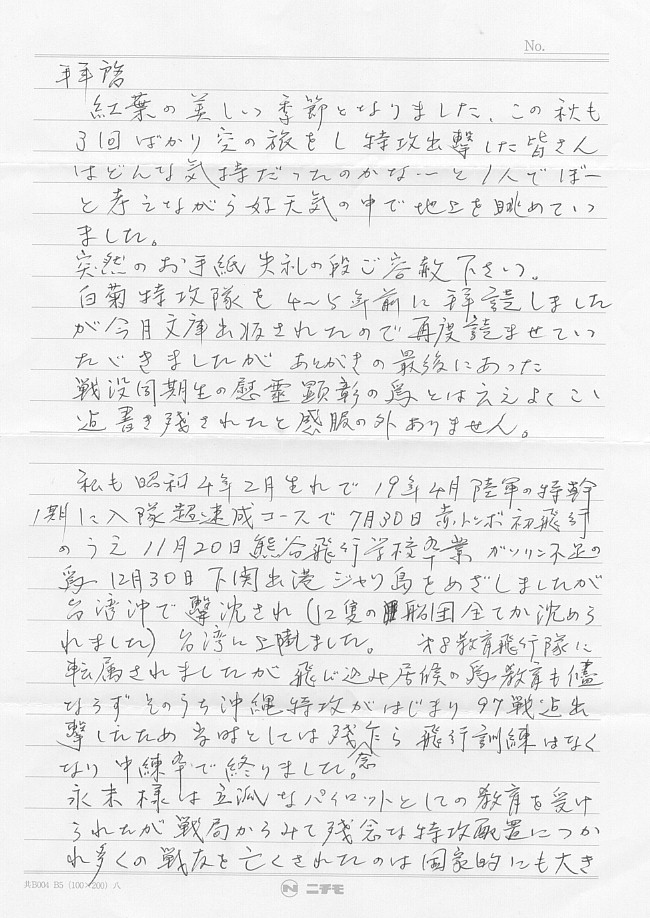 No.
拝啓
紅葉の美しい季節となりました、この秋も
3回ばかり空の旅をし特攻出撃した皆さん
はどんな気持だったのかな〜と1人でぼー
と考えながら好天気の中で地上を眺めてい
ました。
突然のお手紙失礼の段ご容赦下さい。
白菊特攻隊を4〜5年前に拝読しました
が今月文庫出版されたので再度読ませてい
たゞきましたがあとがきの最後にあった
戦没同期生の慰霊顕彰の為とは云えよくこゝ
迄書き残されたと感服の外ありません。
私も昭和4年2月生れで19年4月陸軍の特幹
1期に入隊超速成コースで7月30日赤トンボ初飛行
のうえ11月20日熊谷飛行学校卒業ガソリン不足の
為12月30日下関出港ジャワ島をめざしましたが
台湾沖で撃沈され(12隻の船団全てか沈めら
れました)台湾に上陸しました。 才8教育飛行隊に
転属されましたが飛び込み居候の為教育も儘
ならずそのうち沖縄特攻がはじまり97戦迄出
撃したため当時としては残念乍ら飛行訓練はなく
なり中練卒で終りました。
永末様は立派なパイロットとしての教育を受け
られたが戦局からみて残念な特攻配置につか
れ多くの戦友を亡くされたのは国家的にも大き
共B004 B5 (100×200) 八
N ニチモ